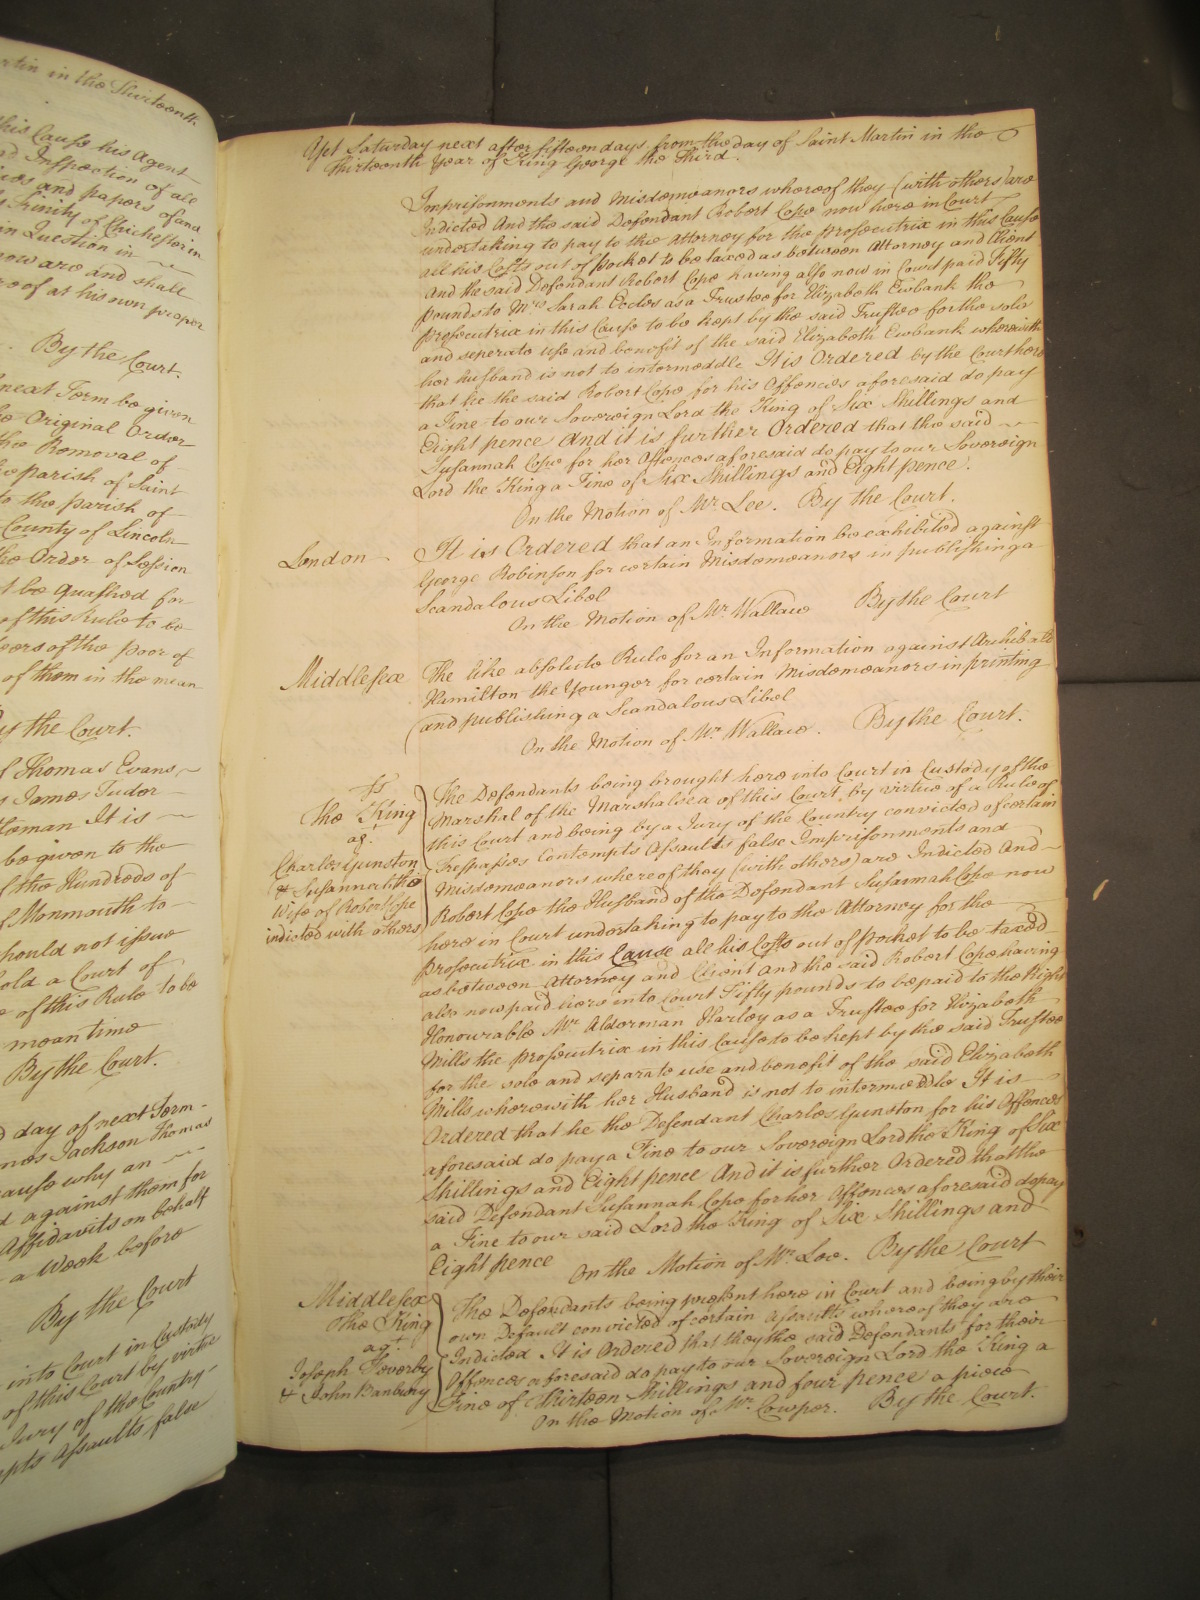 rtin in the Thirteenth
his Cause his Agent
nd Inspection of all
ves and papers of and
y Trinity of Chichester in
in Question in
now are and shall
reof at his own proper
By the Court.
next Term be given
he Original Order
the Removal of
he parish of Saint
to the parish of
County of Lincoln
the Order of Session
t be quashed for
of this Rule to be
eers of the poor of
of them in the mean
y the Court.
f Thomas Evans
s James Tudor
Yeoman It is
be given to the
f the Hundreds of
f Monmouth to
hould not issue
old a Court of
e of this Rule to be
mean time
By the Court.
d day of next Term
mes Jackson Thomas
cause why an
d against them for
Affidavits on behalf
a Week before
By the Court
into Court in Custody
of this Court by virtue
Jury of the Country
mpts Assaults false
Yet Saturday next after fifteen days from the day of Saint Martin in the
Thirteenth Year of King George the Third.
Imprisonments and Misdemeanors whereof they (with others) are
Indicted And the said Defendant Robert Cope now here in Court
undertaking to pay to the Attorney for the prosecutrix in this Cause
all his Costs out of pocket to be taxed as between Attorney and Client
And the said Defendant Robert Cope having also now in Court paid Fifty
pounds to Mrs Sarah Eccles as a Trustee for Elizabeth Ewbank the
prosecutrix in this Cause to be kept by the said Trustee for the sole
and seperate use and benefit of the said Elizabeth Ewbank wherewith
her husband is not to intermeddle It is Ordered by the Court here
that he the said Robert Cope for his Offences aforesaid do pay
a Fine to our Sovereign Lord the King of Six Shillings and
Eight pence And it is further Ordered that the said
Susannah Cope for her Offences aforesaid do pay to our Sovereign
Lord the King a Fine of Six Shillings and Eight pence.
On the Motion of Mr Lee. By the Court.
London It is Ordered that an Information be exhibited against
George Robinson for certain Misdemeanors in publishing a
Scandalous Libel
On the Motion of Mr Wallace By the Court
Middlesex The like absolute Rule for an Information against Archibald
Hamilton the Younger for certain Misdemeanors in printing
and publishing a Scandalous Libel
On the Motion of Mr Wallace. By the Court.
The King
agt
Charles Gunston
& Susanna the
Wife of Robert Cope
indicted with others
The Defendants being brought here into Court in Custody of the
Marshal of the Marshalsea of this Court by virtue of a Rule of
this Court and being by a Jury of the Country convicted of certain
Trespasses Contempts Assaults false Imprisonments and
Misdemeanors whereof they (with others) are Indicted And
Robert Cope the Husband of the Defendant Susannah Cope now
here in Court undertaking to pay to the Attorney for the
prosecutrix in this Cause all his Costs out of pocket to be taxed
as between Attorney and Client and the said Robert Cope having
also now paid here into Court Fifty pounds to be paid to the Right
Honourable Mr Alderman Harley as a Trustee for Elizabeth
Mills the prosecutrix in this Cause to be kept by the said Trustee
for the sole and separate use and benefit of the said Elizabeth
Mills wherewith her Husband is not to intermeddle It is
Ordered that he the Defendant Charles Gunston for his Offences
aforesaid do pay a Fine to our Sovereign Lord the King of Six
Shillings and Eight pence And it is further Ordered that the
said Defendant Susannah Cope for her Offences aforesaid do pay
a Fine to our said Lord the King of Six Shillings and
Eight pence On the Motion of Mr Lee. By the Court
Middlesex
The King
agt
Joseph
& John Banbury
The Defendants being present here in Court and being by their
own Default convicted of certain Assaults whereof they are
Indicted It is Ordered that they the said Defendants for their
Offences aforesaid do pay to our Sovereign Lord the King a
Fine of Thirteen Shillings and four pence a piece
On the Motion of Mr Cowper. By the Court.